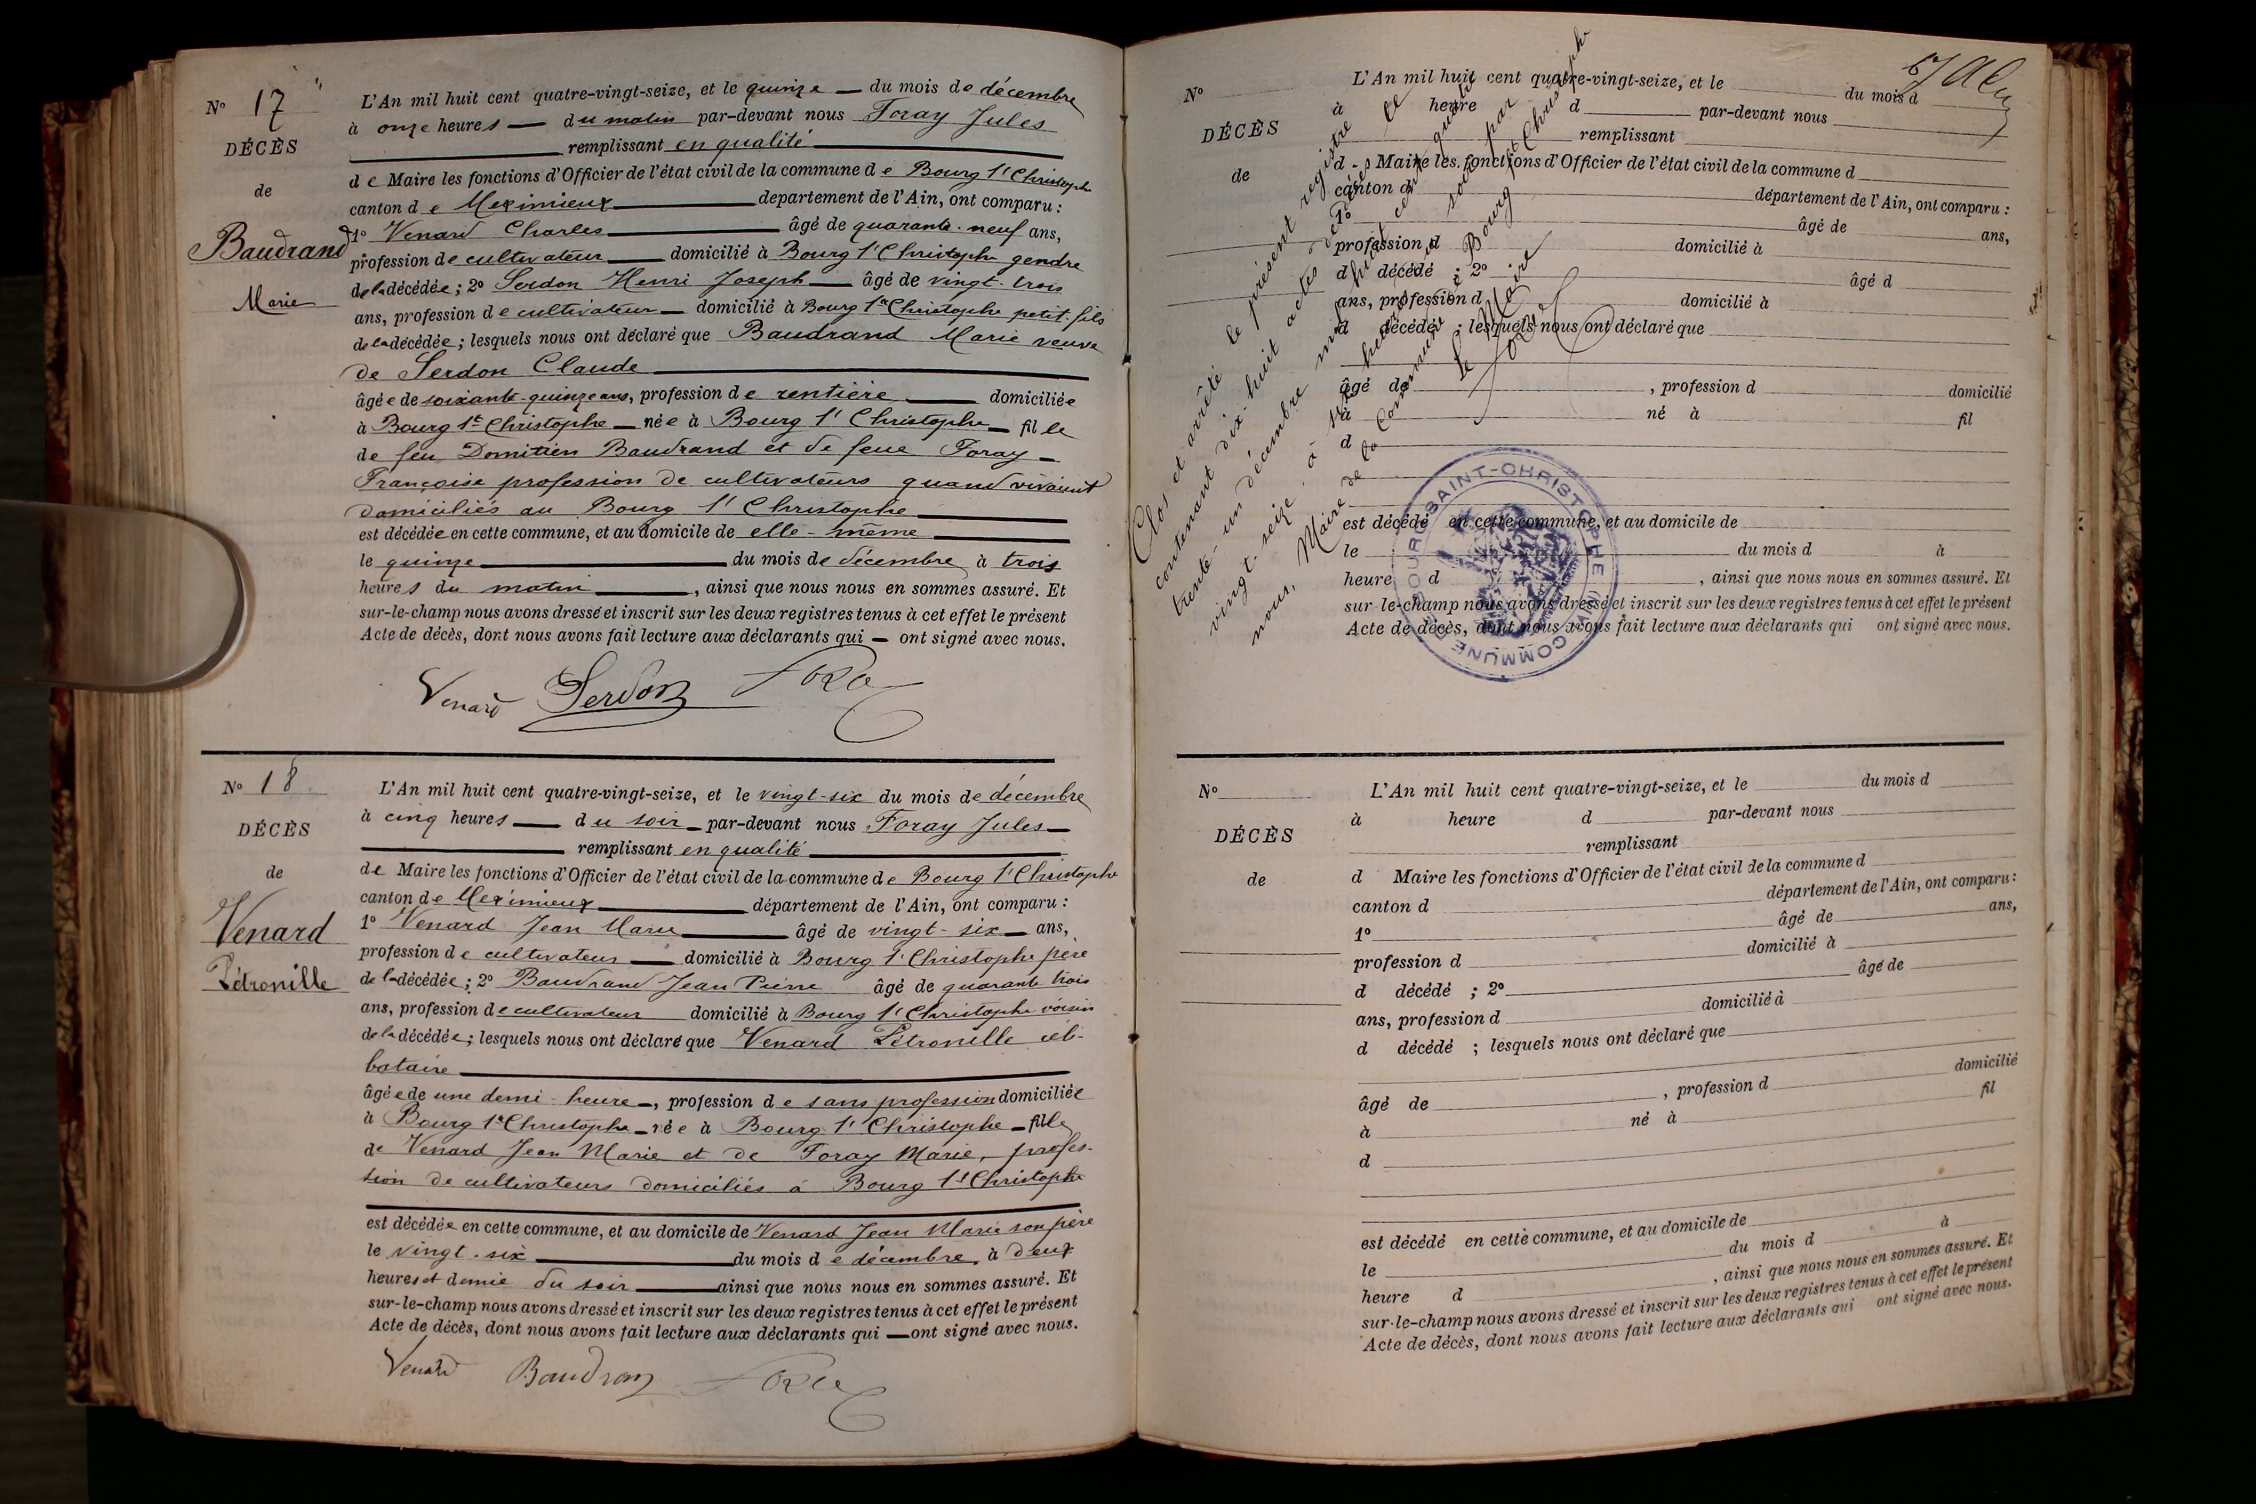 N° 17
DÉCÈS
de
Baudrand
Marie
L'An mil huit cent quatre-vingt-seize, et le quinze — du mois de décembre
à onze heures — du matin par-devant nous Foray Jules
remplissant en qualité
de Maire les fonctions d'Officier de l'état civil de la commune de Bourg St Christophe
canton de Meximieux département de l'Ain, ont comparu :
1° Venard Charles âgé de quarante-neuf ans,
profession de cultivateur — domicilié à Bourg St Christophe gendre
de la décédée ; 2° Serdon Henri Joseph — âgé de vingt-trois
ans, profession de cultivateur — domicilié à Bourg St Christophe petit-fils
de la décédée ; lesquels nous ont déclaré que Baudrand Marie veuve
de Serdon Claude
âgée de soixante-quinze ans, profession de rentière — domiciliée
à Bourg St Christophe — née à Bourg St Christophe — fille
de feu Domitien Baudrand et de feue Foray
Françoise profession de cultivateurs quand vivaient
domiciliés au Bourg St Christophe
est décédée en cette commune, et au domicile de elle-même
le quinze du mois de décembre à trois
heures du matin, ainsi que nous nous en sommes assuré. Et
sur-le-champ nous avons dressé et inscrit sur les deux registres tenus à cet effet le présent
Acte de décès, dont nous avons fait lecture aux déclarants qui — ont signé avec nous.
Venard Serdon Foray
N° 18
DÉCÈS
de
Venard
Pétronille
L'An mil huit cent quatre-vingt-seize, et le vingt-six du mois de décembre
à cinq heures — du soir — par-devant nous Foray Jules —
remplissant en qualité
de Maire les fonctions d'Officier de l'état civil de la commune de Bourg St Christophe
canton de Meximieux département de l'Ain, ont comparu :
1° Venard Jean Marie âgé de vingt-six — ans,
profession de cultivateur — domicilié à Bourg St Christophe père
de la décédée ; 2° Baudrand Jean Pierre âgé de quarante trois
ans, profession de cultivateur domicilié à Bourg St Christophe voisin
de la décédée ; lesquels nous ont déclaré que Venard Pétronille céli-
bataire
âgée de une demi-heure —, profession de sans profession domiciliée
à Bourg St Christophe — née à Bourg St Christophe — fille
de Venard Jean Marie et de Foray Marie, profes-
sion de cultivateurs domiciliés à Bourg St Christophe
est décédée en cette commune, et au domicile de Venard Jean Marie son père
le vingt-six du mois de décembre à deux
heures et demie du soir ainsi que nous nous en sommes assuré. Et
sur-le-champ nous avons dressé et inscrit sur les deux registres tenus à cet effet le présent
Acte de décès, dont nous avons fait lecture aux déclarants qui — ont signé avec nous.
Venard Baudran Foray
N°
DÉCÈS
de
L'An mil huit cent quatre-vingt-seize, et le du mois d
à heure d par-devant nous
remplissant
d Maire les fonctions d'Officier de l'état civil de la commune d
canton d département de l'Ain, ont comparu :
1° âgé de ans,
profession d domicilié à
d décédé ; 2° âgé d
ans, profession d domicilié à
d décédé ; lesquels nous ont déclaré que
âgé de , profession d domicilié
à né à fil
d
est décédé en cette commune, et au domicile de
le du mois d à
heure d , ainsi que nous nous en sommes assuré. Et
sur-le-champ nous avons dressé et inscrit sur les deux registres tenus à cet effet le présent
Acte de décès, dont nous avons fait lecture aux déclarants qui ont signé avec nous.
Clos et arrêté le présent registre
contenant dix-huit actes de décès ce
trente-un décembre mil huit cent quatre
vingt-seize à heures soir par
nous, Maire de la Commune de Bourg St Christophe
Le Maire
Foray
COMMUNE DE BOURG-SAINT-CHRISTOPHE (AIN)
N°
DÉCÈS
de
L'An mil huit cent quatre-vingt-seize, et le du mois d
à heure d par-devant nous
remplissant
d Maire les fonctions d'Officier de l'état civil de la commune d
canton d département de l'Ain, ont comparu :
1° âgé de ans,
profession d domicilié à
d décédé ; 2° âgé de
ans, profession d domicilié à
d décédé ; lesquels nous ont déclaré que
âgé de , profession d domicilié
à né à fil
d
est décédé en cette commune, et au domicile de
le du mois d à
heure d , ainsi que nous nous en sommes assuré. Et
sur-le-champ nous avons dressé et inscrit sur les deux registres tenus à cet effet le présent
Acte de décès, dont nous avons fait lecture aux déclarants qui ont signé avec nous.